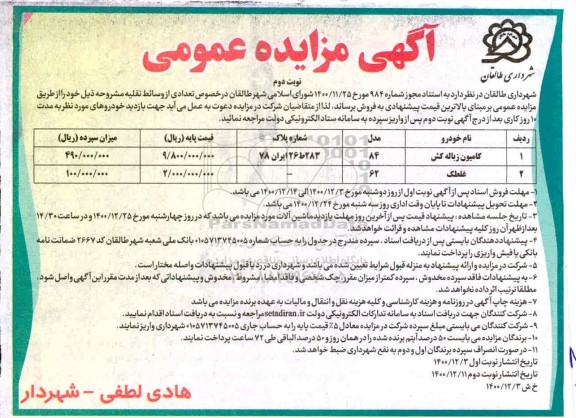 آگهی مزایده عمومی
شهرداری طالقان
نوبت دوم
شهرداری طالقان در نظر دارد به استناد مجوز شماره ۹۸۴ مورخ ۱۴۰۰/۱۱/۲۵ شورای اسلامی شهر طالقان در خصوص تعدادی از وسائط نقلیه مشروحه ذیل خود را از طریق
مزایده عمومی بر مبنای بالاترین قیمت پیشنهادی به فروش برساند، لذا از متقاضیان شرکت در مزایده دعوت به عمل می آید جهت بازدید خودروهای مورد نظر به مدت
۱۰ روز کاری بعد از درج آگهی نوبت دوم پس از واریز سپرده به سامانه ستاد الکترونیکی دولت مراجعه نمائید.
ردیف نام خودرو مدل شماره پلاک قیمت پایه (ریال) میزان سپرده (ریال)
۱ کامیون زباله کش ۸۴ ۲۸۳ط۲۶ ایران ۷۸ ۹/۸۰۰/۰۰۰/۰۰۰ ۴۹۰/۰۰۰/۰۰۰
۲ غلطک ۶۲ ۲/۰۰۰/۰۰۰/۰۰۰ ۱۰۰/۰۰۰/۰۰۰
۱- مهلت فروش اسناد پس از آگهی نوبت اول از روز دوشنبه مورخ ۱۴۰۰/۱۲/۳ الی ۱۴۰۰/۱۲/۱۴ می باشد.
۲- مهلت تحویل پیشنهادات تا پایان وقت اداری روز سه شنبه مورخ ۱۴۰۰/۱۲/۲۴ می باشد.
۳- تاریخ جلسه مشاهده : پیشنهاد قیمت پس از آخرین روز مهلت بازدید ماشین آلات مورد مزایده می باشد که در روز چهارشنبه مورخ ۱۴۰۰/۱۲/۲۵ و در ساعت ۱۴/۳۰
بعدازظهر آن روز کلیه پیشنهادات مشاهده و قرائت خواهد شد.
۴- پیشنهاددهندگان بایستی پس از دریافت اسناد ، سپرده مندرج در جدول را به حساب شماره ۰۱۰۵۷۱۳۷۲۵۰۰۵ بانک ملی شعبه شهر طالقان کد ۲۶۶۷ ضمانت نامه
بانکی یا فیش واریزی را پرداخت نمایند.
۵- شرکت در مزایده و ارائه پیشنهاد به منزله قبول شرایط تعیین شده می باشد و شهرداری در رد یا قبول پیشنهادات واصله مختار است.
۶- به پیشنهادات فاقد سپرده مخدوش ، سپرده کمتر از میزان مقرر(چک شخصی و فاقد امضا، مشروط) مخدوش و پیشنهاداتی که بعد از مدت مقرر این آگهی واصل شود،
مطلقا ترتیب اثر داده نخواهد شد.
۷- هزینه چاپ آگهی در روزنامه و هزینه کارشناسی و کلیه هزینه نقل و انتقال و مالیات به عهده برنده مزایده می باشد
۸- شرکت کنندگان جهت دریافت اسناد به سامانه تدارکات الکترونیکی دولت setadiran.ir مراجعه و نسبت به دریافت اسناد اقدام نمایید.
۹- شرکت کنندگان می بایستی مبلغ سپرده شرکت در مزایده معادل ۵٪ قیمت پایه را به حساب جاری ۰۱۰۵۷۱۳۷۴۵۰۰۵ شهرداری واریز نمایند.
۱۰- برندگان مزایده می بایست ۵۰ درصد آیتم برنده شده را در همان روز و ۵۰ درصد الباقی طی ۷۲ ساعت پرداخت نمایند.
۱۱- در صورت انصراف سپرده برندگان اول و دوم به نفع شهرداری ضبط خواهد شد.
تاریخ انتشار نوبت اول ۱۴۰۰/۱۲/۳
تاریخ انتشار نوبت دوم ۱۴۰۰/۱۲/۱۱
خ ش ۱۴۰۰/۱۲/۳
هادی لطفی - شهردار